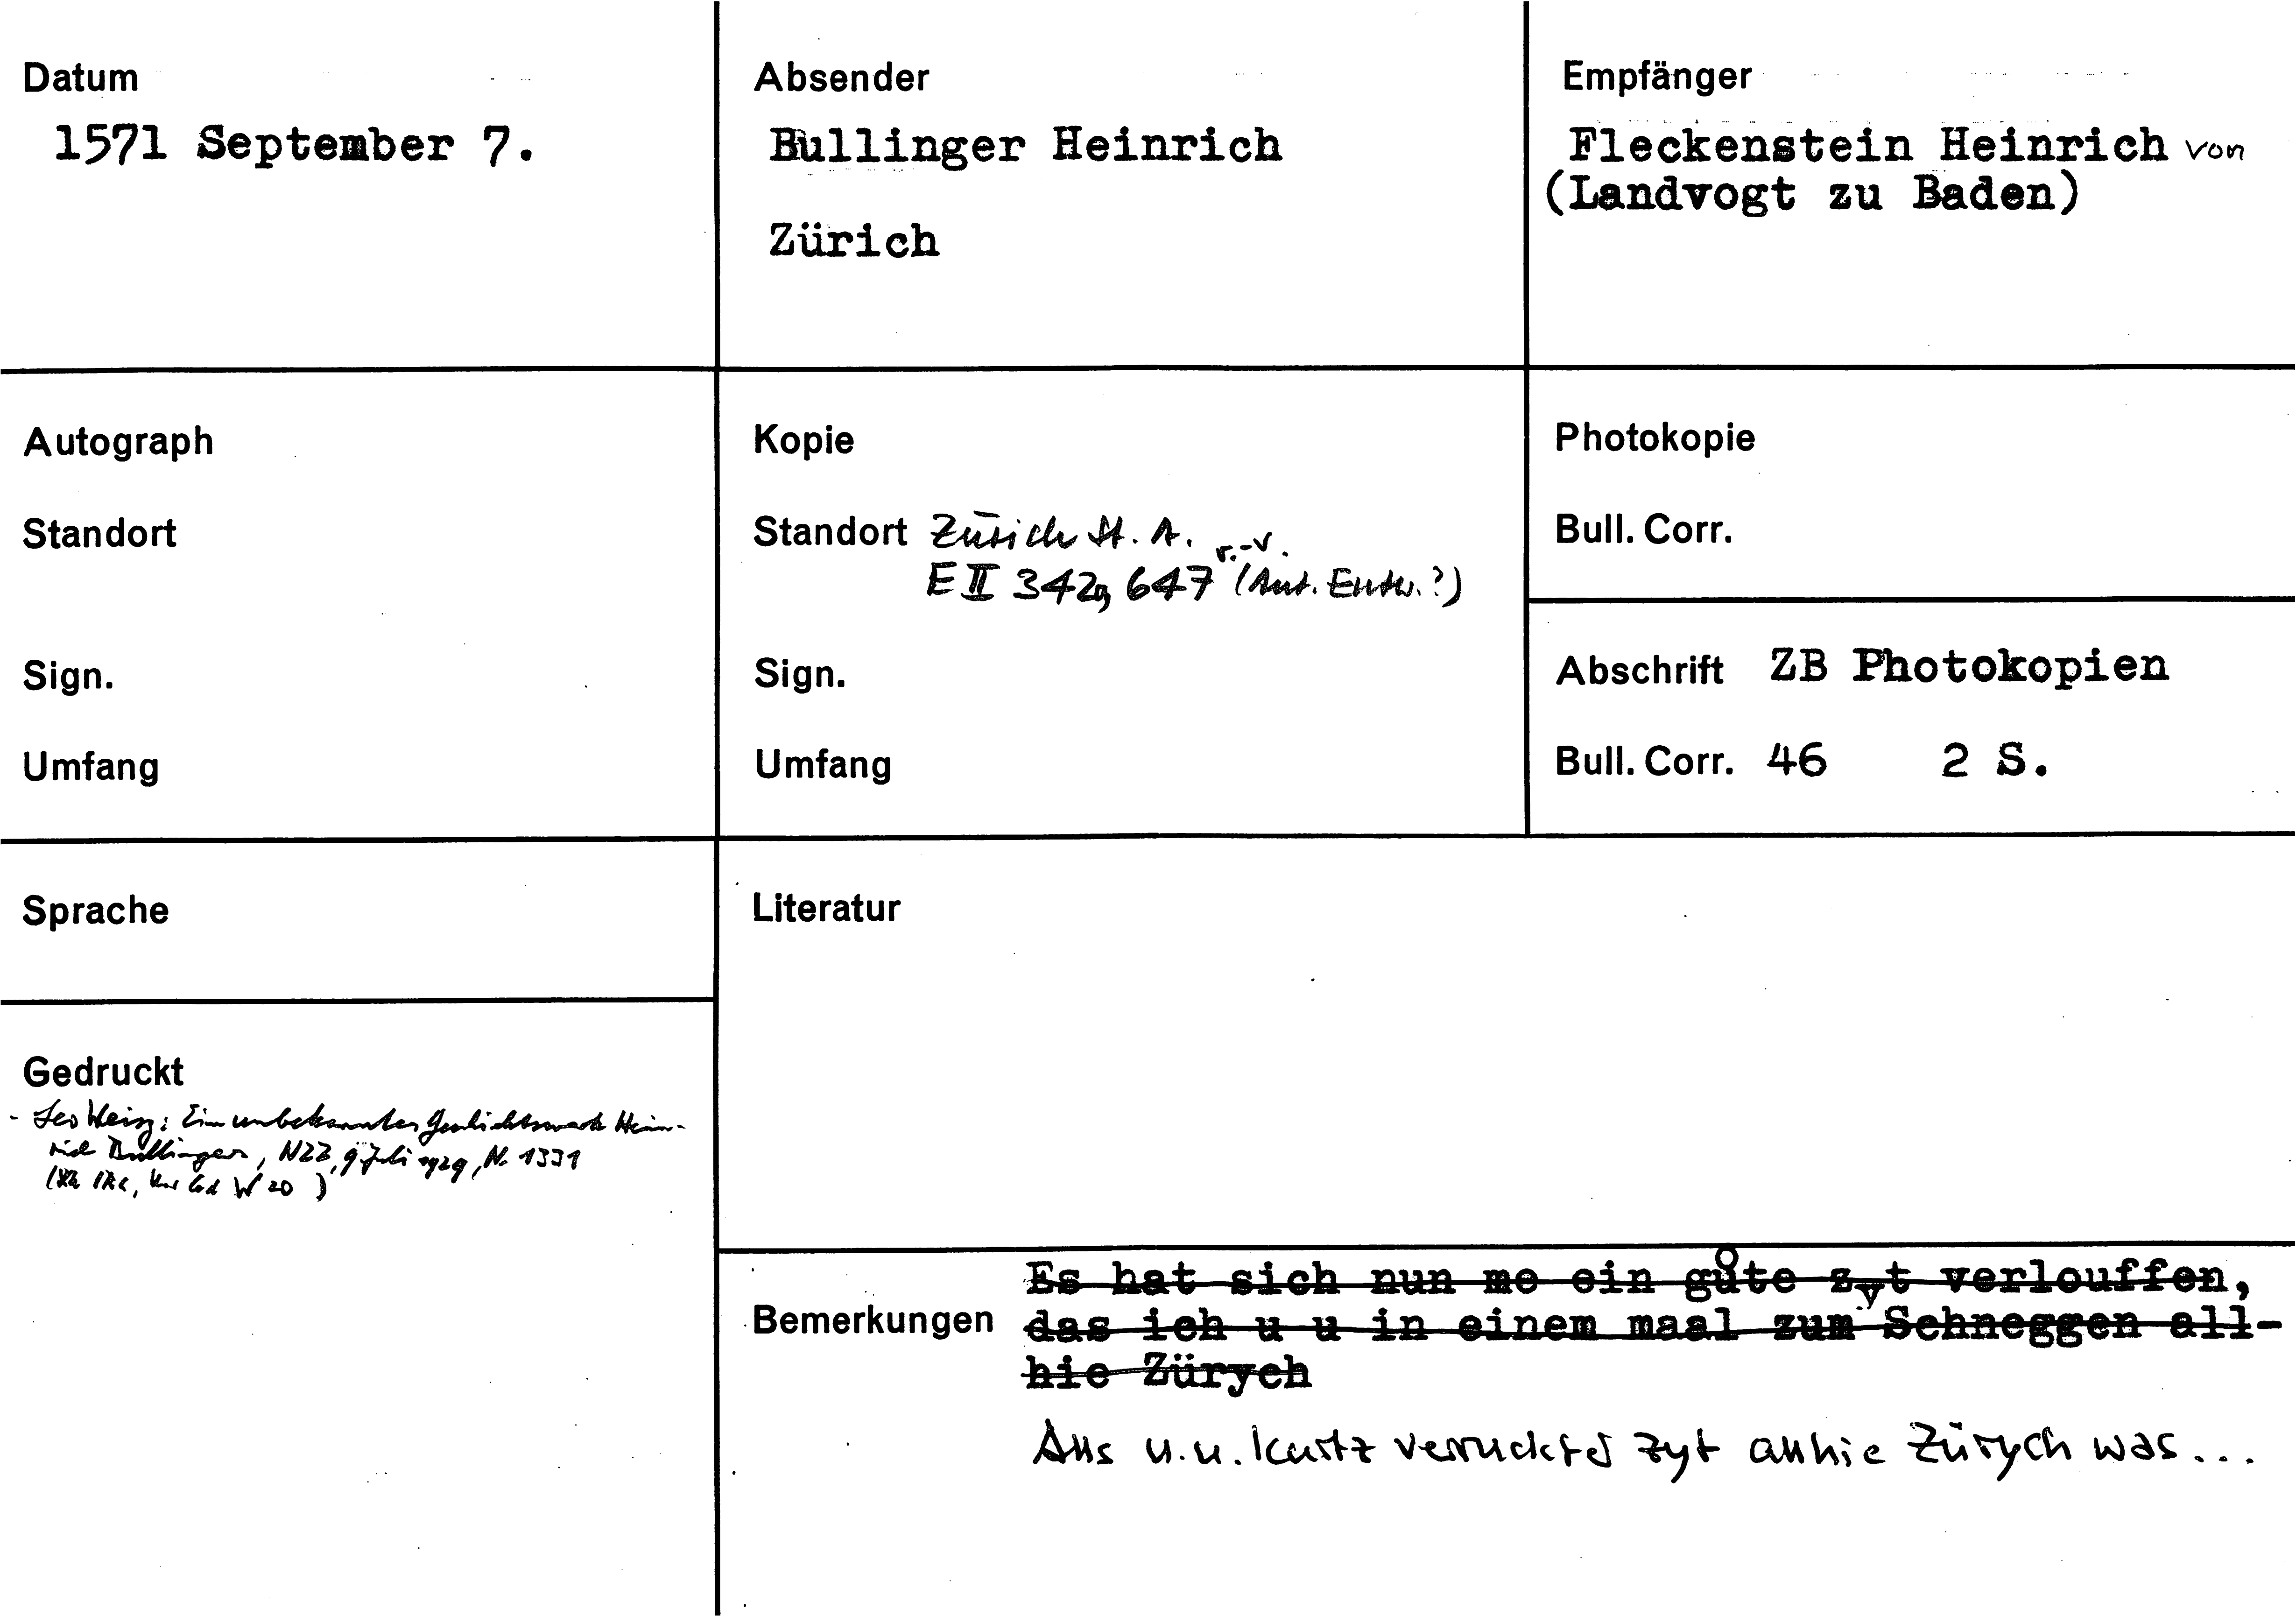 Datum
1571 September 7.
Absender
Bullinger Heinrich
Zürich
Empfänger
Fleckenstein Heinrich von
(Landvogt zu Baden)
Autograph
Standort
Sign.
Umfang
Kopie
Standort Zürich St. A.
E II 342a, 647 r.-v. (Aut. Entw.?)
Sign.
Umfang
Photokopie
Bull. Corr.
Abschrift ZB Photokopien
Bull. Corr. 46 2 S.
Sprache
Gedruckt
- Leo Weisz: Ein unbekanntes Geschichtswerk Hein-
rich Bullingers, NZZ, 9. Juli 1929, Nr. 1331
W 20)
Literatur
Bemerkungen
Es hat sich nun me ein gůte zyt verlouffen,
das ich u u in einem maal zum Schneggen all-
hie Zürych
Alls u.u. kurtz verruckter zyt allhie Zürych was...